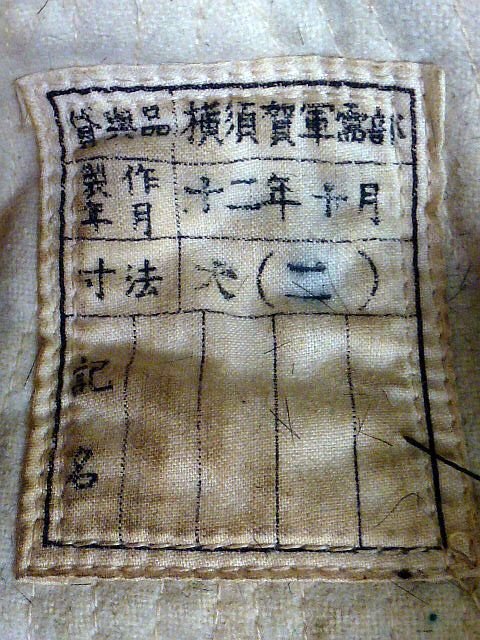 貸與品 橫須賀軍需部
製作年月 十二年十月
寸法 大(二)
記名